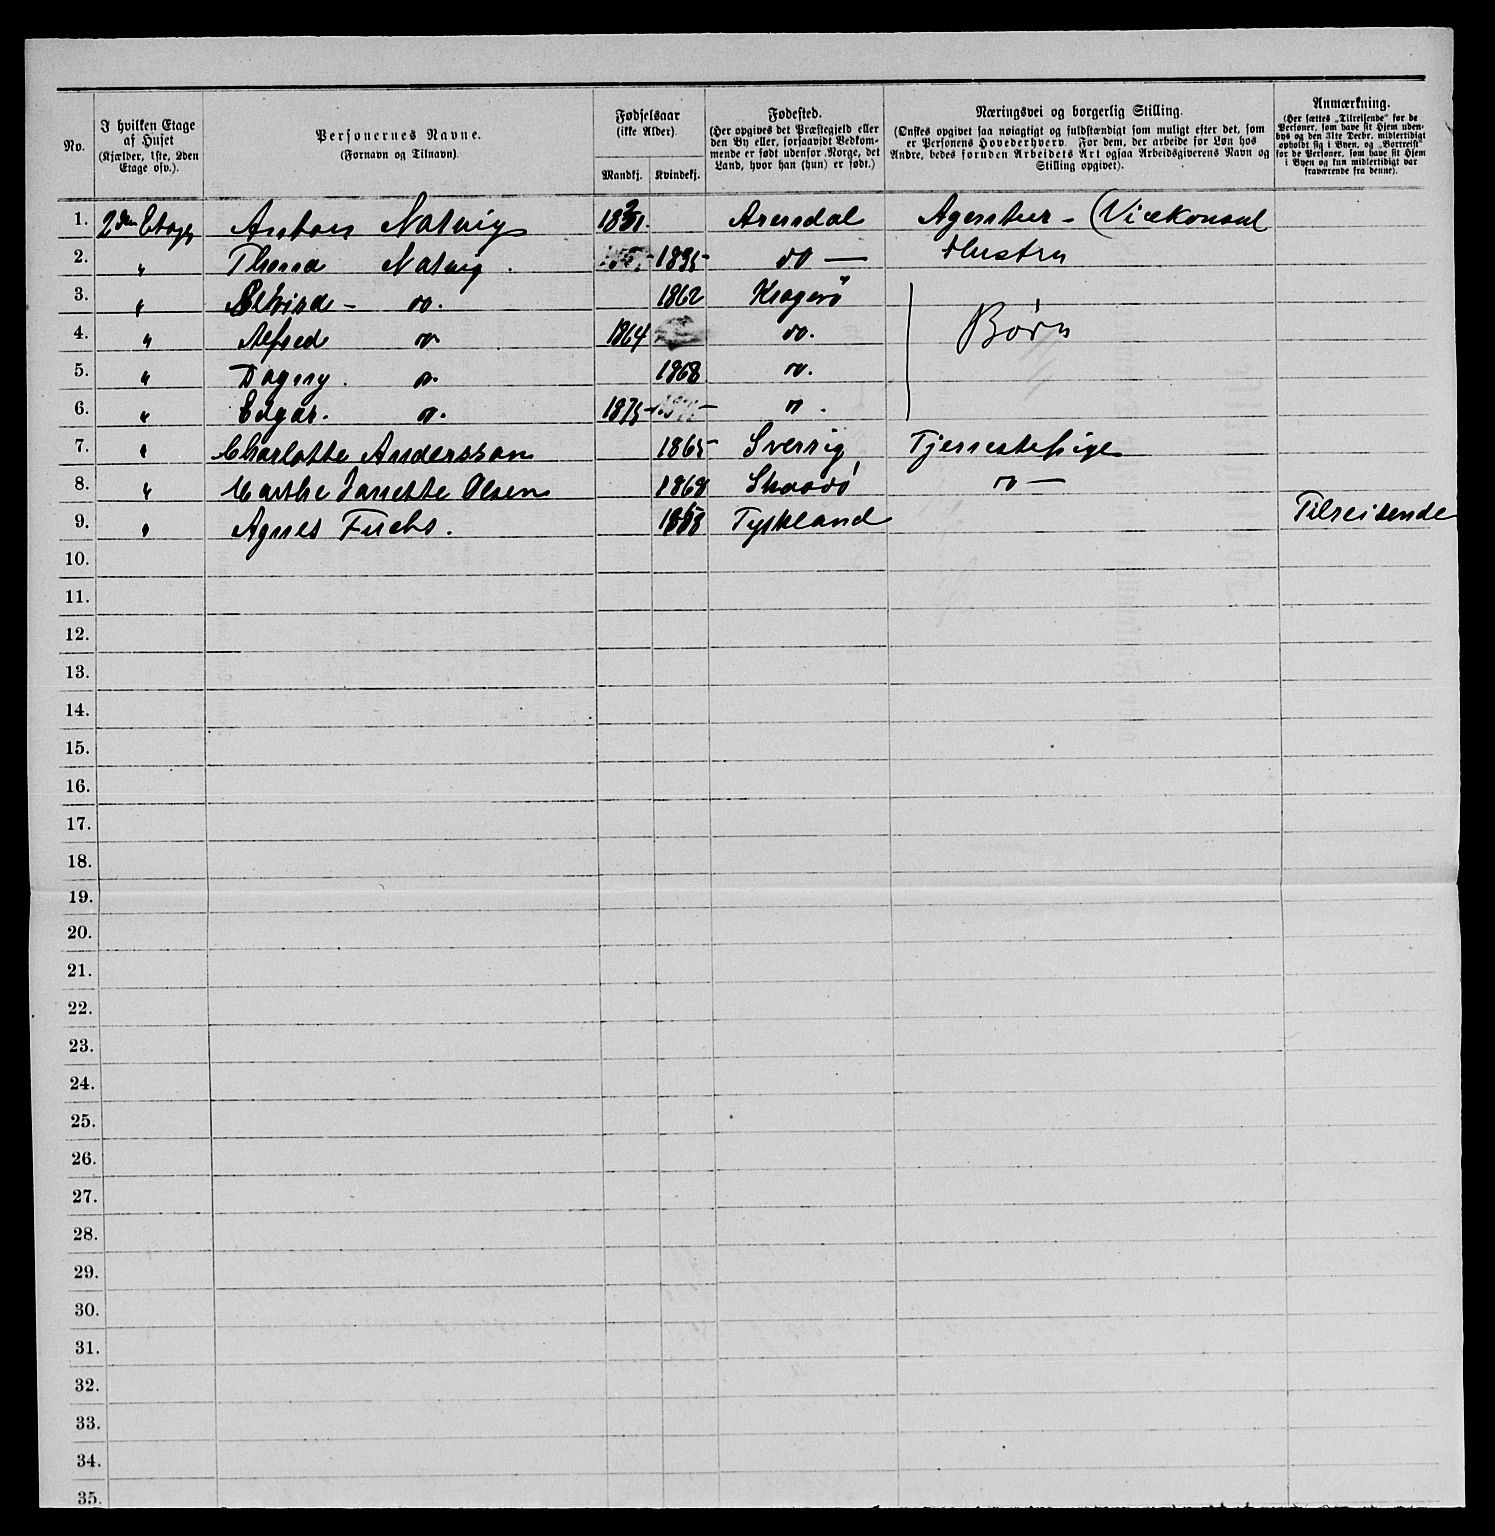 No.
I hvilken Etage
af Huset
(Kjælder, 1ste, 2den
Etage osv.).
Personernes Navne.
(Fornavn og Tilnavn).
Fødselsaar
(ikke Alder).
Mandkj. Kvindekj.
Fødested.
(Her opgives det Præstegjeld eller
den By eller, forsaavidt Vedkom-
mende er født udenfor Norge, det
Land, hvor han (hun) er født.)
Næringsvei og borgerlig Stilling.
(Ønskes opgivet saa nøiagtigt og fuldstændigt som muligt efter det, som
er Personens Hovederhverv. For dem, der arbeide for Løn hos
Andre, bedes foruden Arbeidets Art ogsaa Arbeidsgiverens Navn og
Stilling opgivet).
Anmærkning.
(Her sættes „Tilreisende“ for de
Personer, som have sit Hjem uden-
bys og den 31te Decbr. midlertidigt
opholdt sig i Byen, og „Bortreist“
for de Personer, som have sit Hjem
i Byen og kun midlertidigt var
fraværende fra denne).
1. 2den Etage Anton Natvig Arendal Agentur - (Vicekonsul
2. " Natvig. 1835 do — Hustru
3. " do. 1862 Kragerø
4. " Alfred do 1864 do. Børn
5. " Dagny. do. 1868 do.
6. " Edgar. do. 1875 do.
7. " Charlotte Andersson 1865 Sverrig Tjenestepige
8. " Marthe Janette Olsen 1868 Skaadø do —
9. " Agnes Fuchs. Tyskland Tilreisende
10.
11.
12.
13.
14.
15.
16.
17.
18.
19.
20.
21.
22.
23.
24.
25.
26.
27.
28.
29.
30.
31.
32.
33.
34.
35.